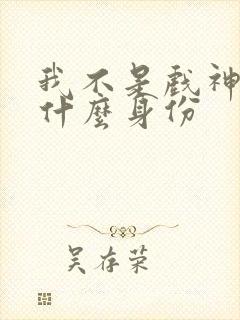 我不是戏神
什麼身份
吴存荣